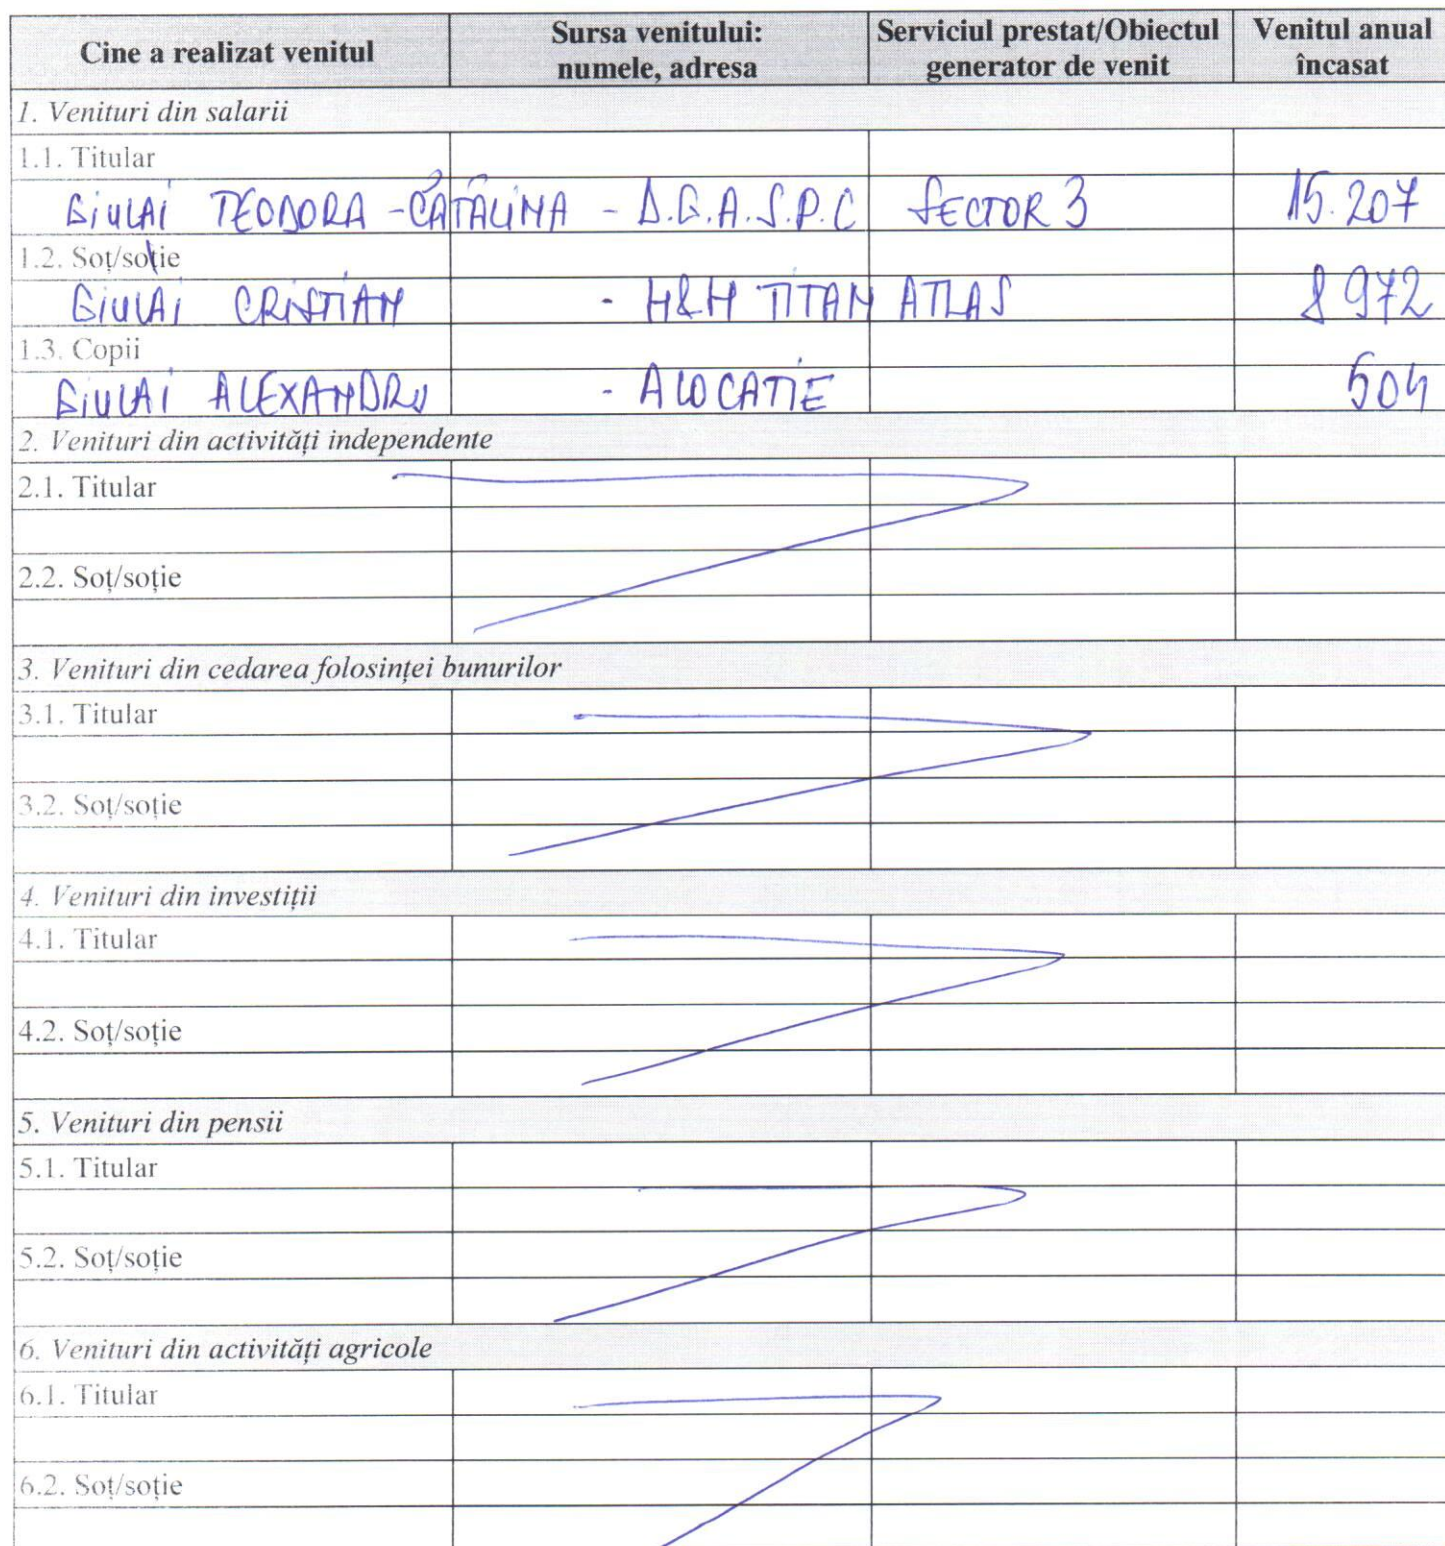 Cine a realizat venitul
Sursa venitului:
numele, adresa
Serviciul prestat/Obiectul
generator de venit
Venitul anual
încasat
1. Venituri din salarii
1.1. Titular
GIULAI TEODORA-CĂTĂLINA - D.G.A.S.P.C SECTOR 3 15.207
1.2. Soț/soție
GIULAI CRISTIAN - H&H TITAN ATLAS 8 972
1.3. Copii
GIULAI ALEXANDRU - ALOCATIE 504
2. Venituri din activități independente
2.1. Titular
2.2. Soț/soție
3. Venituri din cedarea folosinței bunurilor
3.1. Titular
3.2. Soț/soție
4. Venituri din investiții
4.1. Titular
4.2. Soț/soție
5. Venituri din pensii
5.1. Titular
5.2. Soț/soție
6. Venituri din activități agricole
6.1. Titular
6.2. Soț/soție